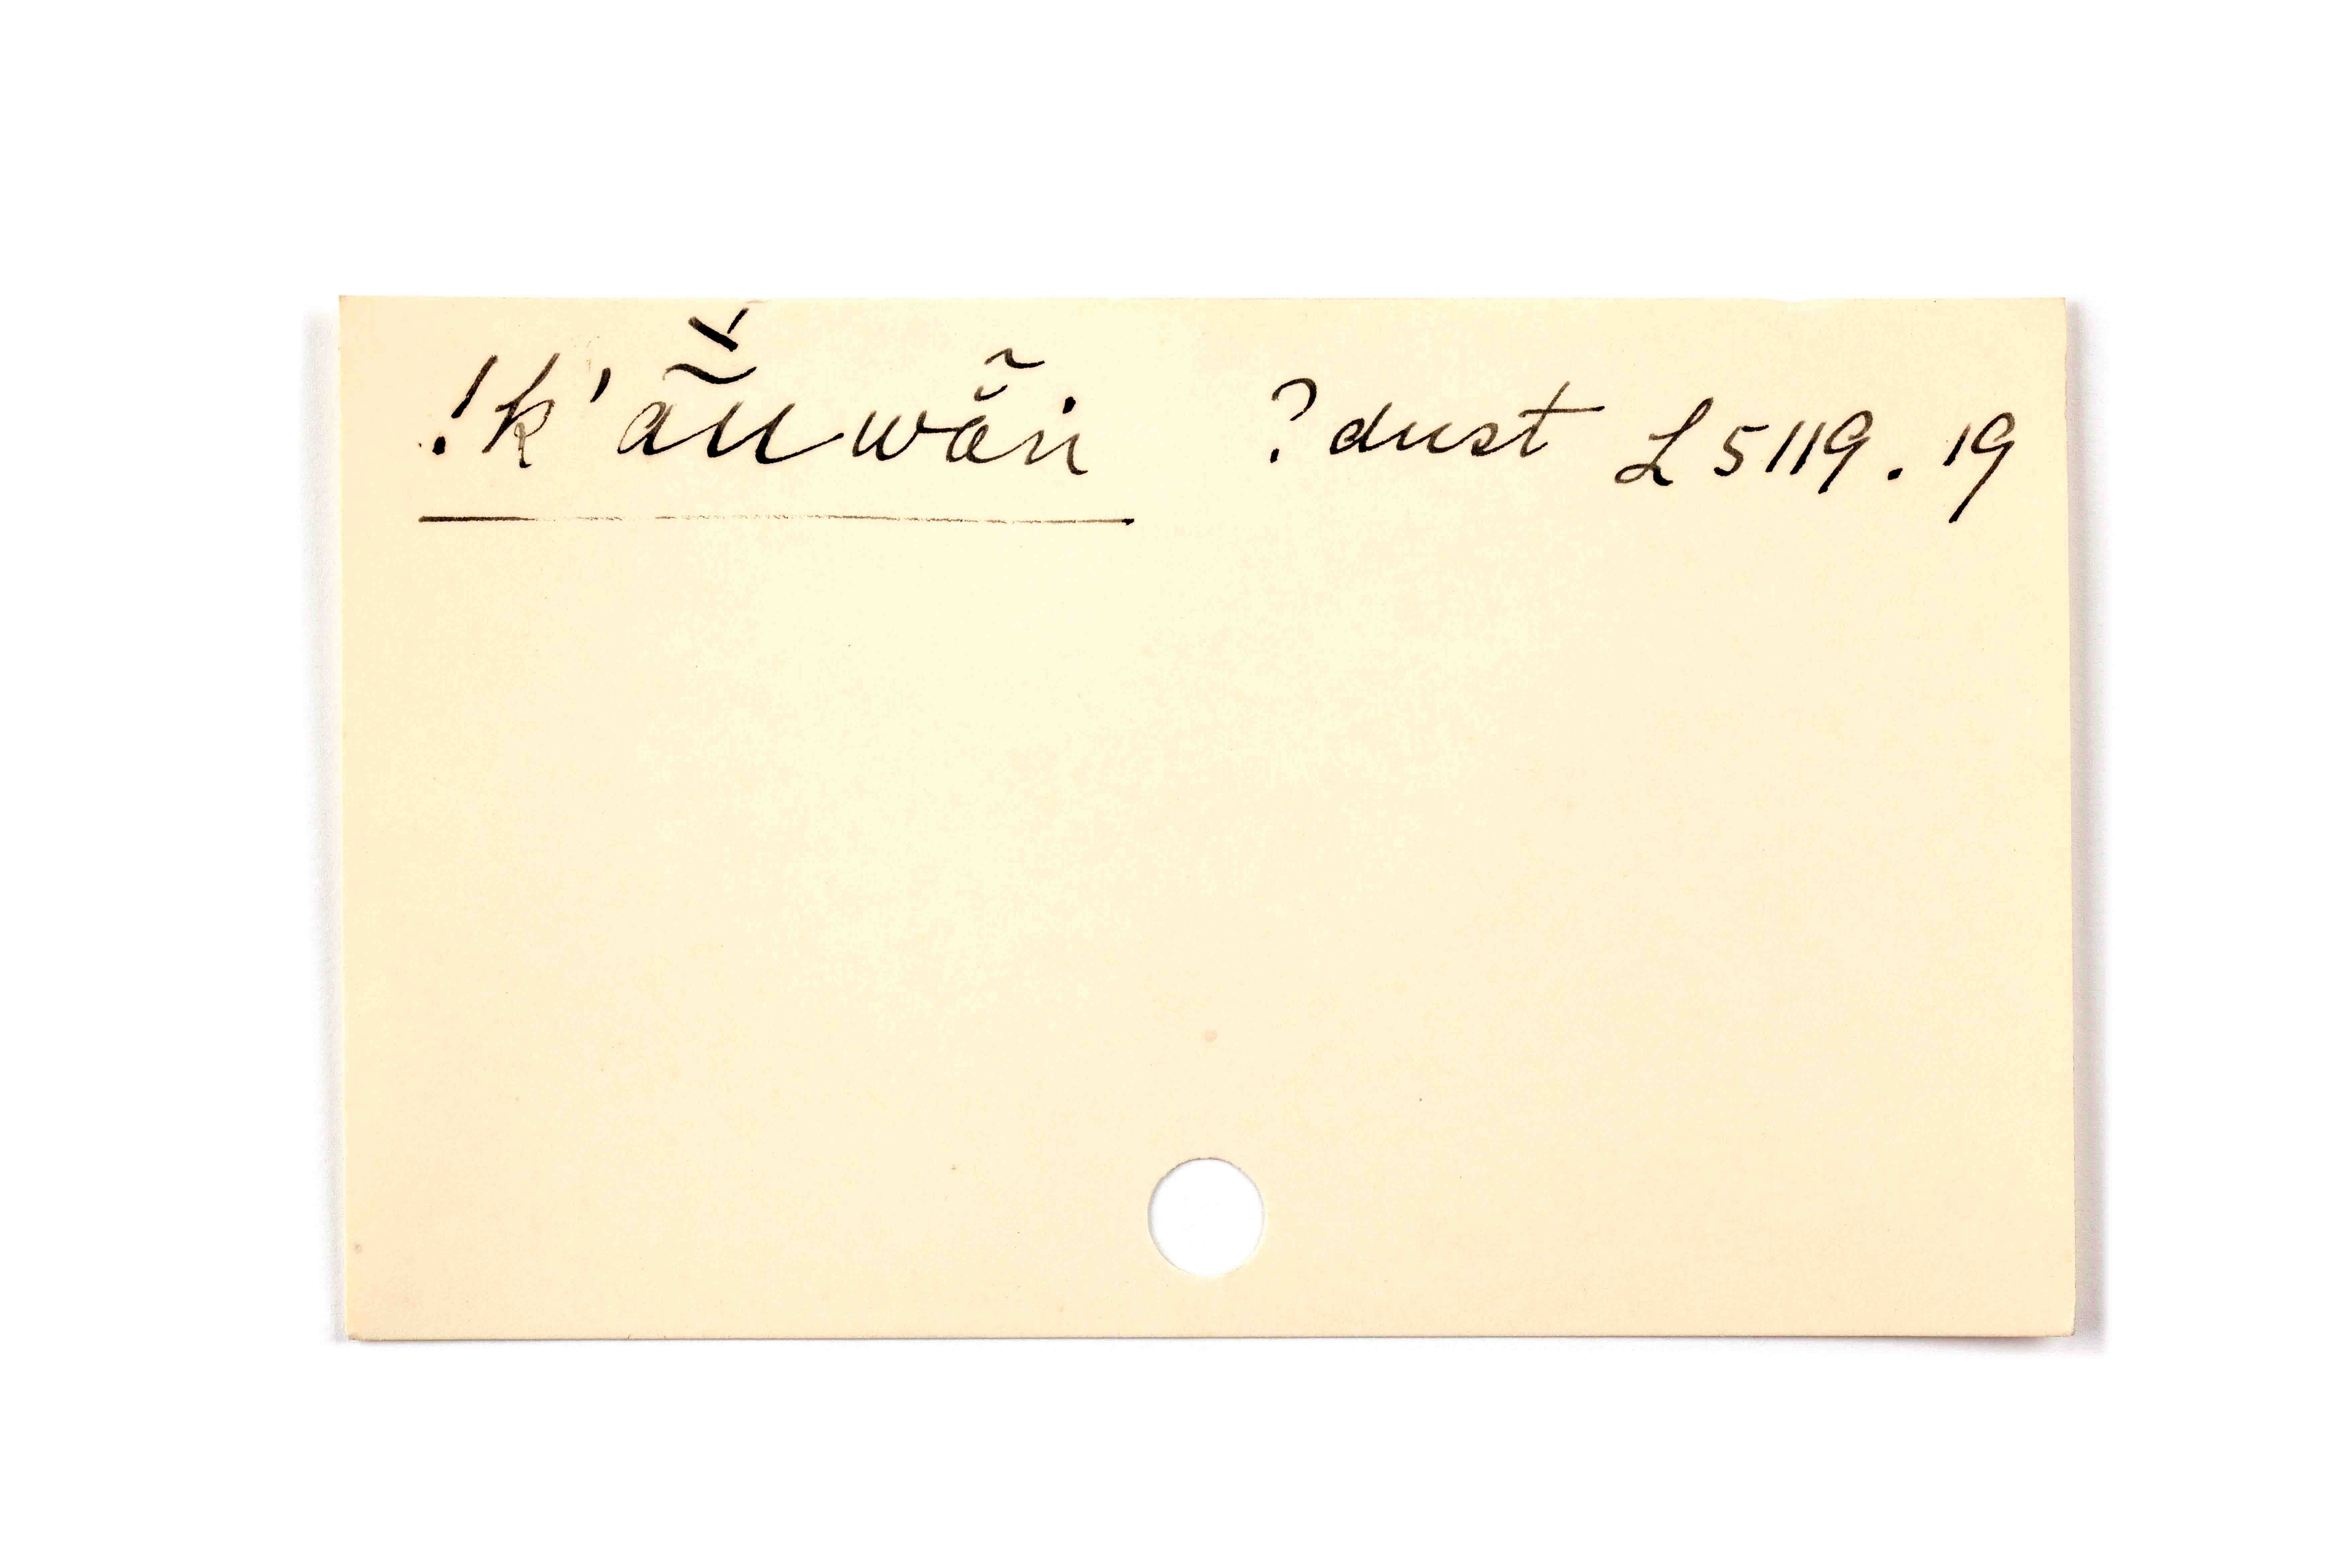 !k'ã̆ŭwə̃̆n ?dust L5119.19